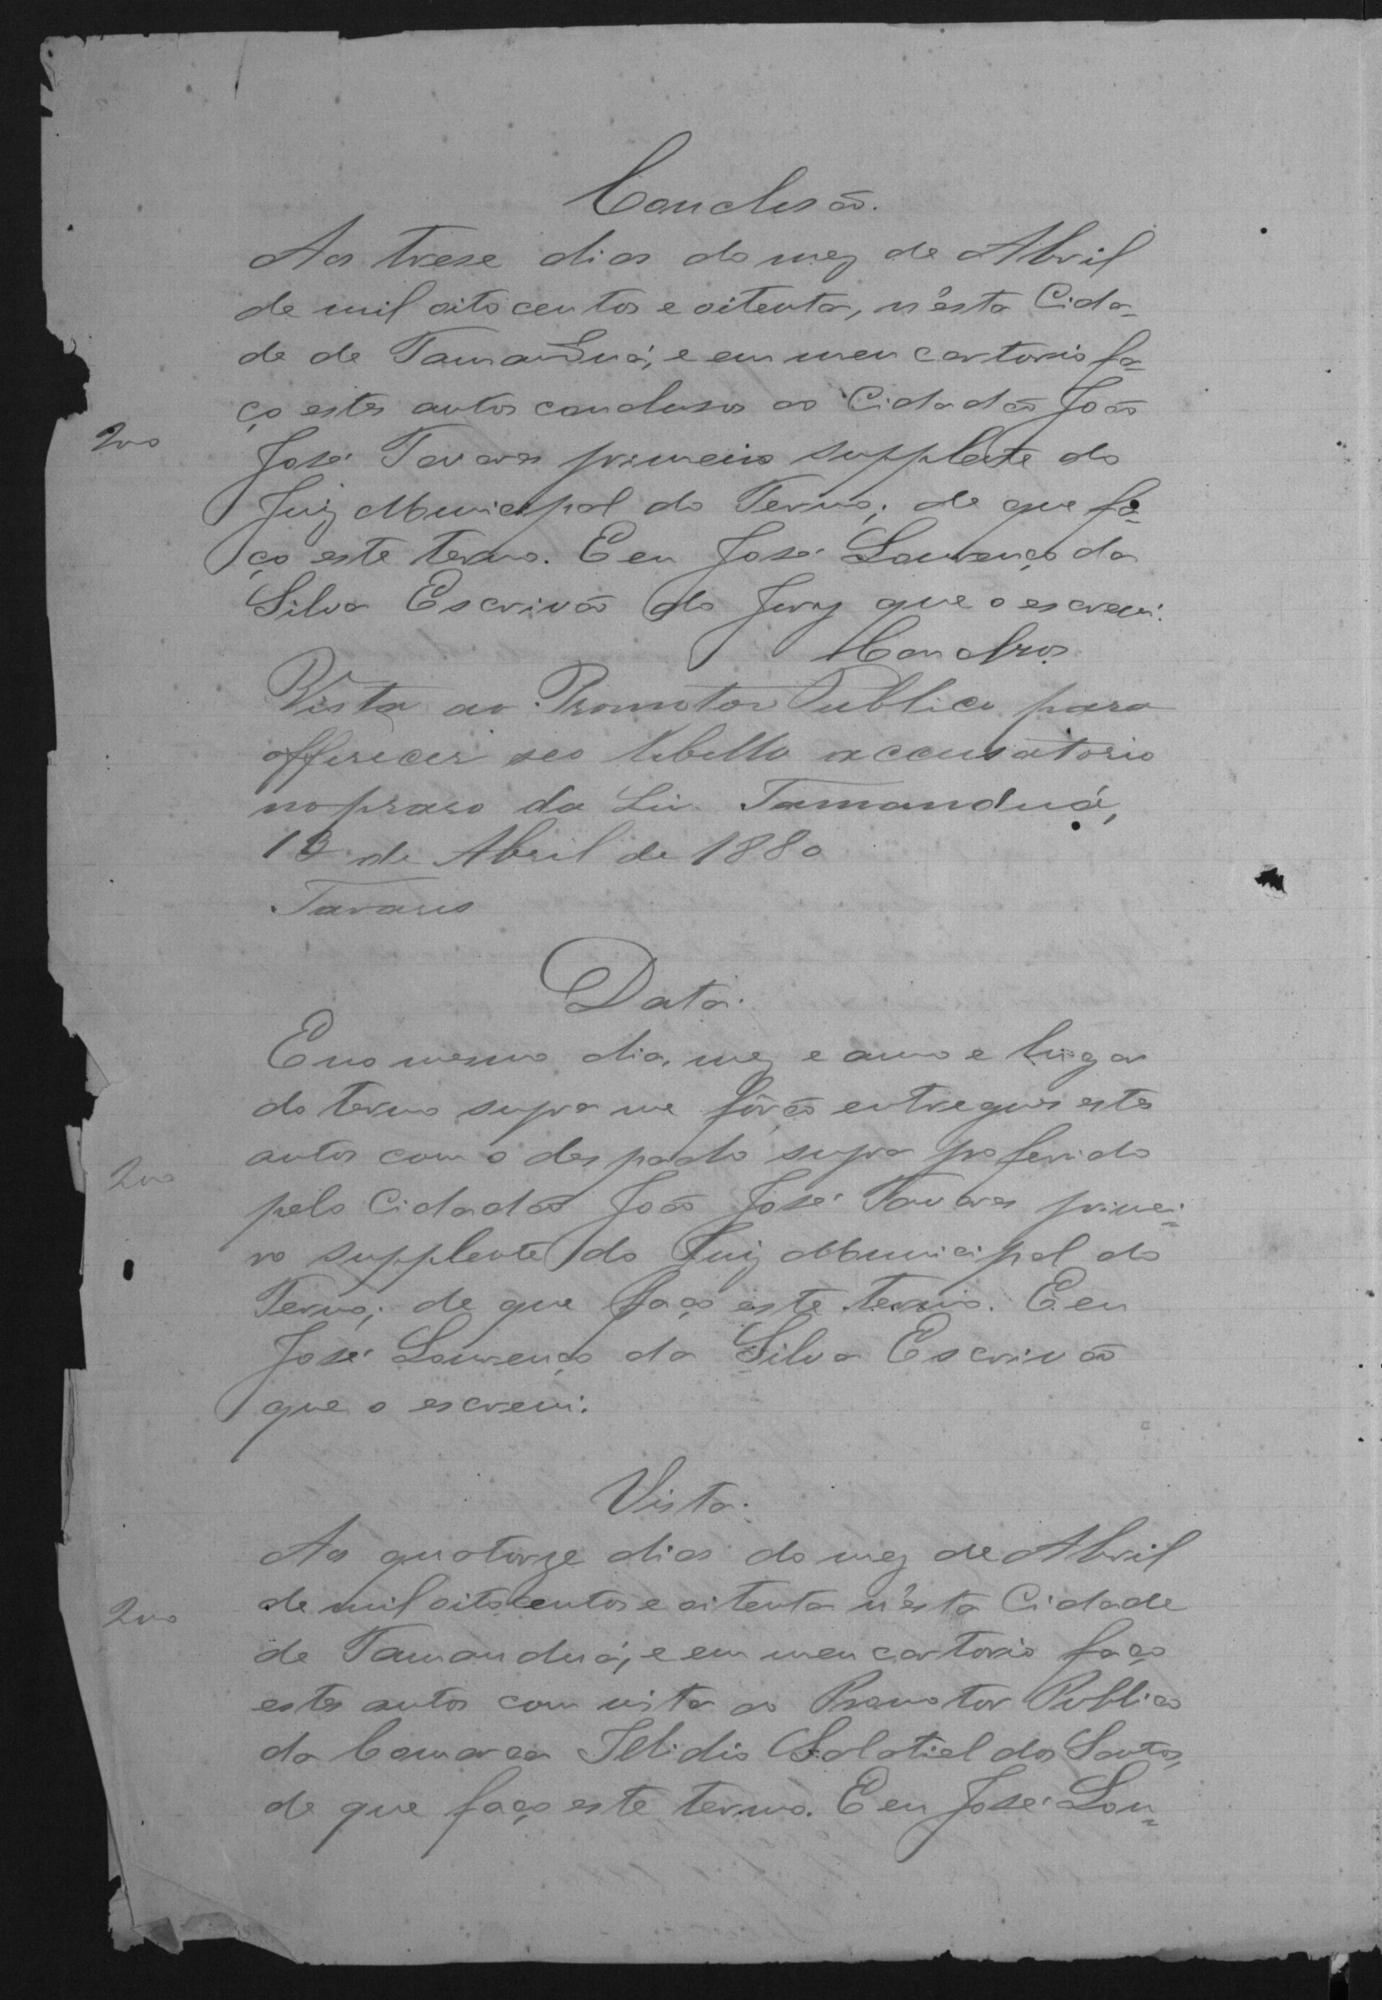 Conclusão.
Aos trese dias do mez de Abril
de mil oito centos e oitenta, n'esta Cida-
de de Tamanduá, e em meu cartorio fa-
ço estes autos conclusos ao Cidadão João
200
José Tavares primeiro supplente do
Juiz Municipal do Termo; de que fa-
ço este termo. E eu José Lourenço da
Silva Escrivão do Jury que o escrevi.
Conclsos.
Vista ao Promotor Publico para
offerecer seo libello accusatorio
no praso da Lei. Tamanduá,
13 de Abril de 1880
Tavares
Data.
E no mesmo dia, mez e anno e lugar
do termo supra me fôrão entregues estes
autos com o despacho supra proferido
200
pelo Cidadão João José Tavares primei-
ro supplente do Juiz Municipal do
Termo; de que faço este termo. E eu
José Lourenço da Silva Escrivão
que o escrevi.
Vista.
Aos quatorze dias do mez de Abril
de mil oitocentos e oitenta n'esta Cidade
200
de Tamanduá, e em meu cartorio faço
estes autos com vista ao Promotor Publico
da Comarca Illidio Salatiel dos Santos,
de que faço este termo. E eu José Lou-